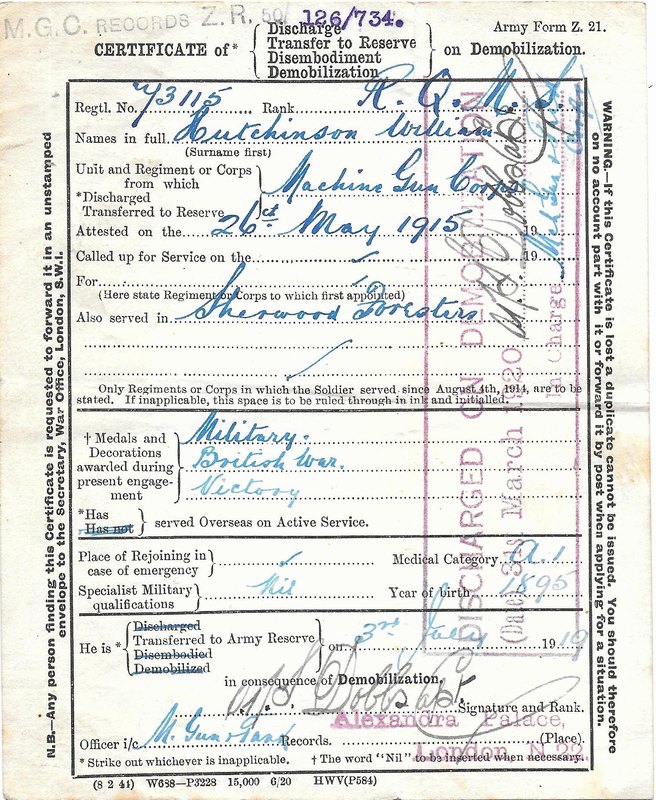 M.G.C. RECORDS Z.R. 50/ 126/734.
Army Form Z. 21.
CERTIFICATE of* { Discharge
Transfer to Reserve
Disembodiment
Demobilization } on Demobilization.
Regtl. No. 73115 Rank R. Q. M. S.
Names in full Hutchinson William
(Surname first)
Unit and Regiment or Corps
from which
*Discharged
Transferred to Reserve } Machine Gun Corps
Attested on the 26th May 1915 19
Called up for Service on the 19
For
(Here state Regiment or Corps to which first appointed)
Also served in Sherwood Foresters
Only Regiments or Corps in which the Soldier served since August 4th, 1914, are to be
stated. If inapplicable, this space is to be ruled through in ink and initialled.
† Medals and
Decorations
awarded during
present engage-
ment
Military.
British War.
Victory
*Has
Has not } served Overseas on Active Service.
Place of Rejoining in
case of emergency
Medical Category A.1
Specialist Military
qualifications } Nil
Year of birth 1895
He is * { Discharged
Transferred to Army Reserve
Disembodied
Demobilized } on 3rd July 1919
in consequence of Demobilization.
Signature and Rank.
Alexandra Palace,
Officer i/c M. Gun & Tank Records. (Place).
London N 22
* Strike out whichever is inapplicable. † The word "Nil" to be inserted when necessary.
(8 2 44) W688—P3228 15,000 6/20 HWV(P584)
N.B.—Any person finding this Certificate is requested to forward it in an unstamped
envelope to the Secretary, War Office, London, S.W.1.
WARNING.—If this Certificate is lost a duplicate cannot be issued. You should therefore
on no account part with it or forward it by post when applying for a situation.
DISCHARGED ON DEMOBILIZATION
(Date) 31 March 1920
In Charge